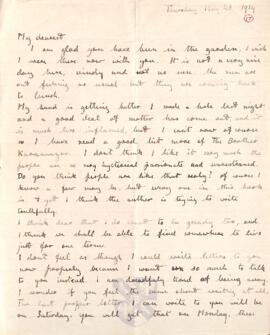 Thursday Aug 28. 1919
(17)
My dearest
I am glad you have been in the garden, I wish
I were there now with you. It is not a very nice
day here, windy and not so sure the men are
out fishing as usual but they are coming back
to lunch.
My hand is getting better I made a hole last night
and a good deal of matter has come out, and it
is much less inflamed, but I can't row of course
so I have read a good bit more of the Brother
Karamazov. I don't think I like it very much the
people are so very hysterical passionate and unrestrained.
Do you think people are like that really? of course I
know a few may be, but every one in this book
is & yet I think the author is trying to write
truthfully.
I think dear that I do want to be greedy too, and
I think we shall be able to find somewhere to live
just for one term.
I don't feel as though I could write letters to you
now properly because I want so much to talk
to you instead. I am dreadfully tired of being away.
I wonder if you feel the same about writing at all.
The last proper letter I can write to you will be
on Saturday. You will get that on Monday, then